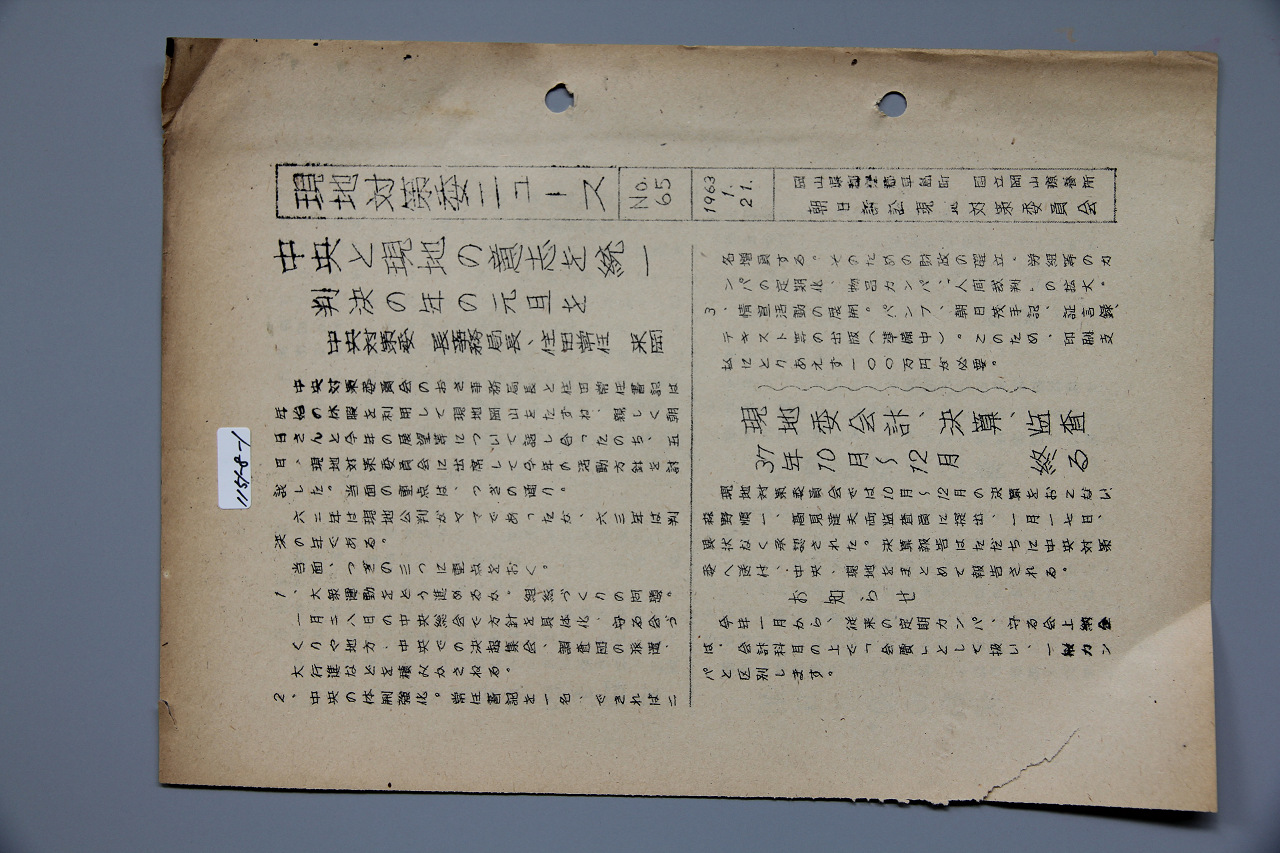 現地対策委ニュース
No. 65
1963 1. 21.
岡山県都窪郡早島町 国立岡山療養所
朝日訴訟現地対策委員会
中央と現地の意志を統一
判決の年の元旦を
中央対策委 長事務局長、住田常任 来岡
中央対策委員会のおさ事務局長と住田常任書記は
年始の休暇を利用して現地岡山をたずね、親しく朝
日さんと今年の展望等について話し合ったのち、五
日、現地対策委員会に出席して今年の活動方針を討
議した。当面の重点は、つぎの通り。
六二年は現地公判がヤマであったが、六三年は判
決の年である。
当面、つぎの三つに重点をおく。
1、大衆運動をどう進めるか。組織づくりの問題。
一月二八日の中央総会で方針を具体化、守る会づ
くりや地方、中央での決起集会、調査団の派遣、
大行進などを積みかさねる。
2、中央の体制強化。常任書記を一名、できれば二
名増員する。そのための財政の確立。労組等のカ
ンパの定期化、物品カンパ、「人間裁判」の拡大。
3、情宣活動の展開。パンフ、朝日茂手記、証言録、
テキスト等の出版(準備中)。このため、印刷支
払にとりあえず一〇〇万円が必要。
現地委会計、決算、監査
37年10月〜12月 終る
現地対策委員会では10月〜12月の決算をおこない
森野順一、高見達夫両監査員に提出、一月一七日、
異状なく承認された。決算報告はただちに中央対策
委へ送付、中央、現地をまとめて報告される。
お知らせ
今年一月から、従来の定期カンパ、守る会上納金
は、会計科目の上で「会費」として扱い、一般カン
パと区別します。
1151-8-1